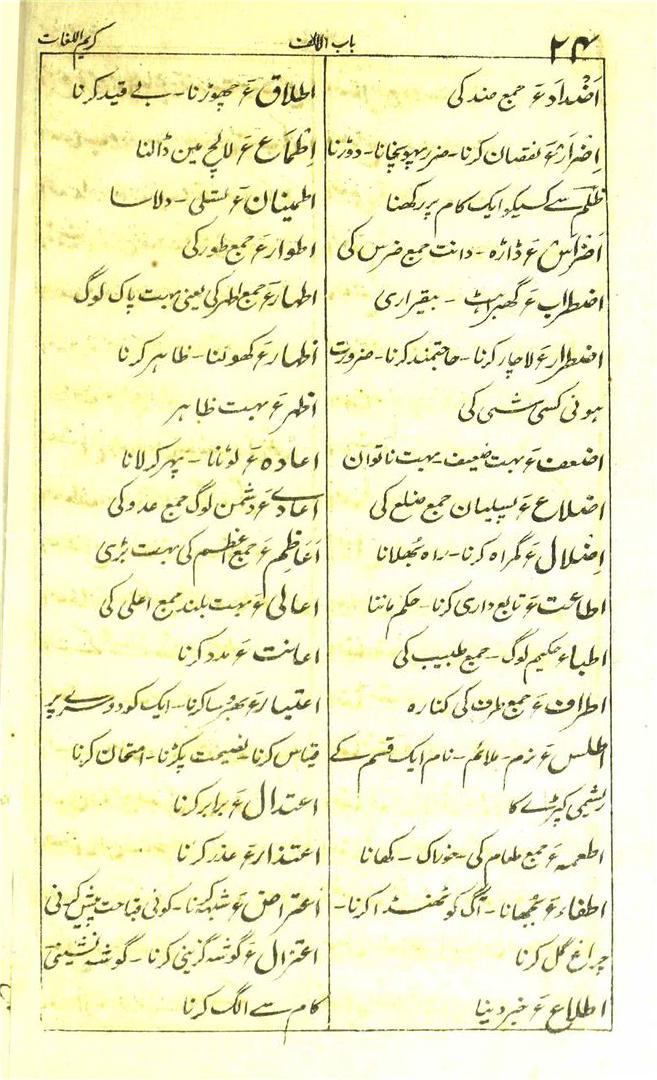 ۲۴ باب الالف کریم اللغات
اَضْدَاد ع جمع ضد کی
اِضْرَار ع نقصان کرنا - ضرر پہونچانا - دوڑنا
ظلم سے کسیکو ایک کام پر رکھنا
اَضْرَاس ع ڈاڑہ - دانت جمع ضرس کی
اضطراب ع گھبراہٹ - بیقراری
اضطرار ع لاچار کرنا - حاجتمند کرنا - ضرورت
ہونی کسی شی کی
اضعف ع بہت ضعیف - بہت ناتوان
اضلاع ع پسلیان جمع ضلع کی
اِضلال ع گمراہ کرنا - راہ بھلانا
اطاعت ع تابع داری کرنا - حکم ماننا
اطباء حکیم لوگ - جمع طبیب کی
اطراف ع جمع طرف کی کنارہ
اطلس ع نرم - ملائم - نام ایک قسم کے
ریشمی کپڑے کا
اطعمہ ع جمع طعام کی خوراک - کھانا
اطفاء ع بُجھانا - آگ کو ٹھنڈا کرنا -
چراغ گل کرنا
اطلاع ع خبر دینا
اطلاق ع چھوڑنا - بے قید کرنا
اِطْمَاع ع لالچ مین ڈالنا
اطمینان ع تسلی - دلاسا
اطوار ع جمع طور کی
اطہار ع جمع اطہر کی یعنی بہت پاک لوگ
اظہار ع کھولنا - ظاہر کرنا
اظہر ع بہت ظاہر
اعادہ ع لوٹانا - پہر کر لانا
اعادے ع دشمن لوگ جمع عدو کی
اَعَاظِم ع جمع اعظم کی بہت بڑی
اعالی ع بہت بلند جمع اعلی کی
اعانت ع مدد کرنا
اعتبار ع بھروسا کرنا - ایک کو دوسرے پر
قیاس کرنا - نصیحت پکڑنا - امتحان کرنا
اعتدال ع برابر کرنا
اعتذار ع عذر کرنا
اعتراض ع شبہہ کرنا - کوئی قباحت پیش کرنی
اعتزال ع گوشہ گزینی کرنا - گوشہ نشینی
کام سے الگ کرنا